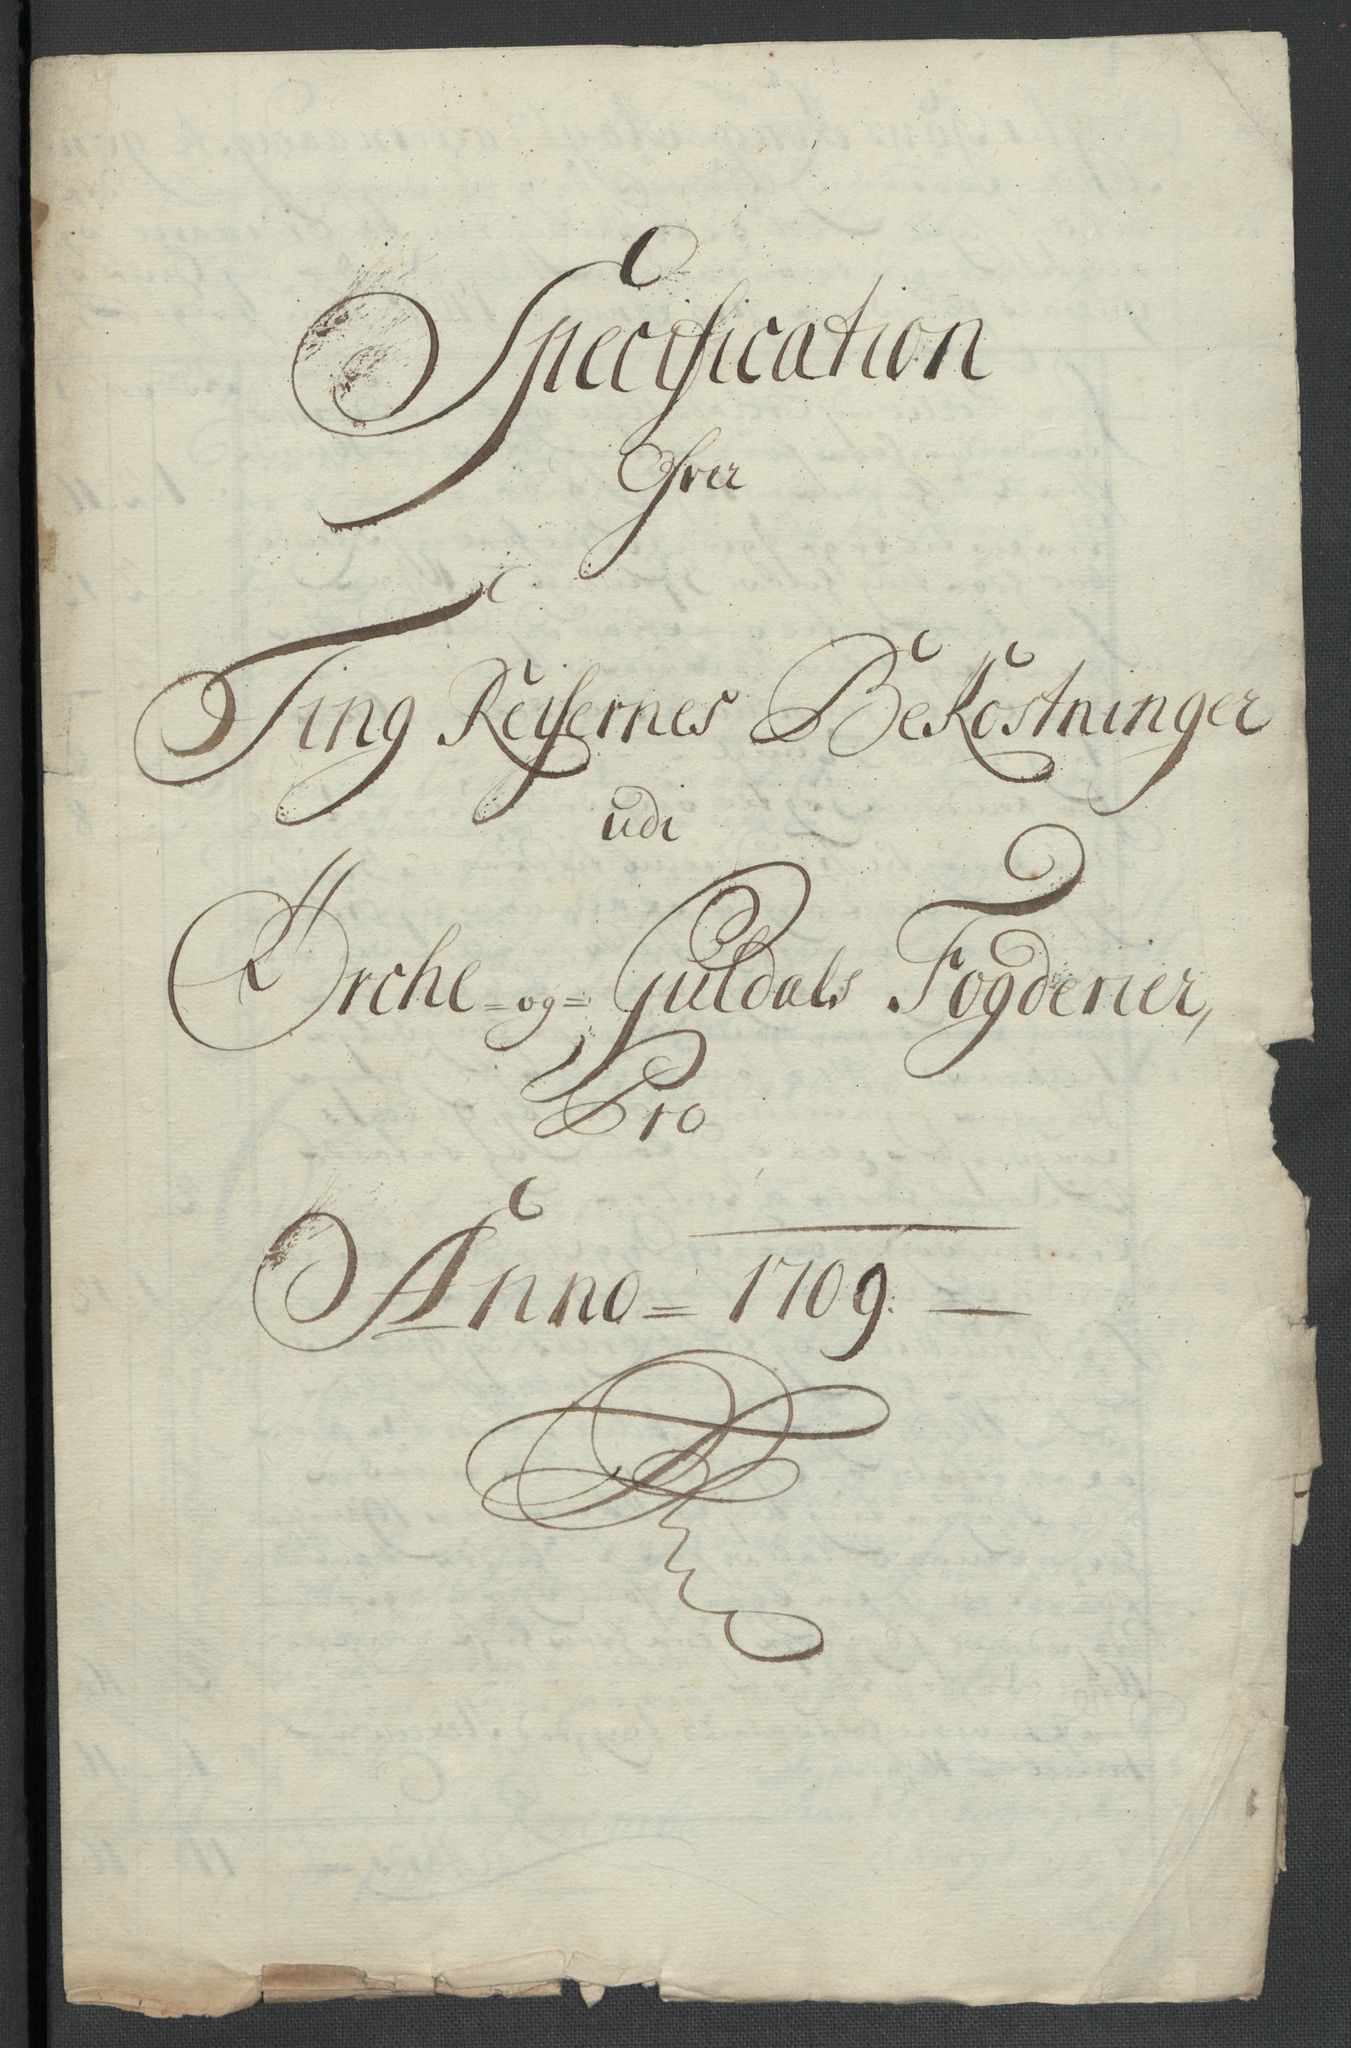 Specification
Ofver
Ting Reisernes Bekostninger
udi
Ørche =og= Guldals Fogderier,
Pro
Anno = 1709 —